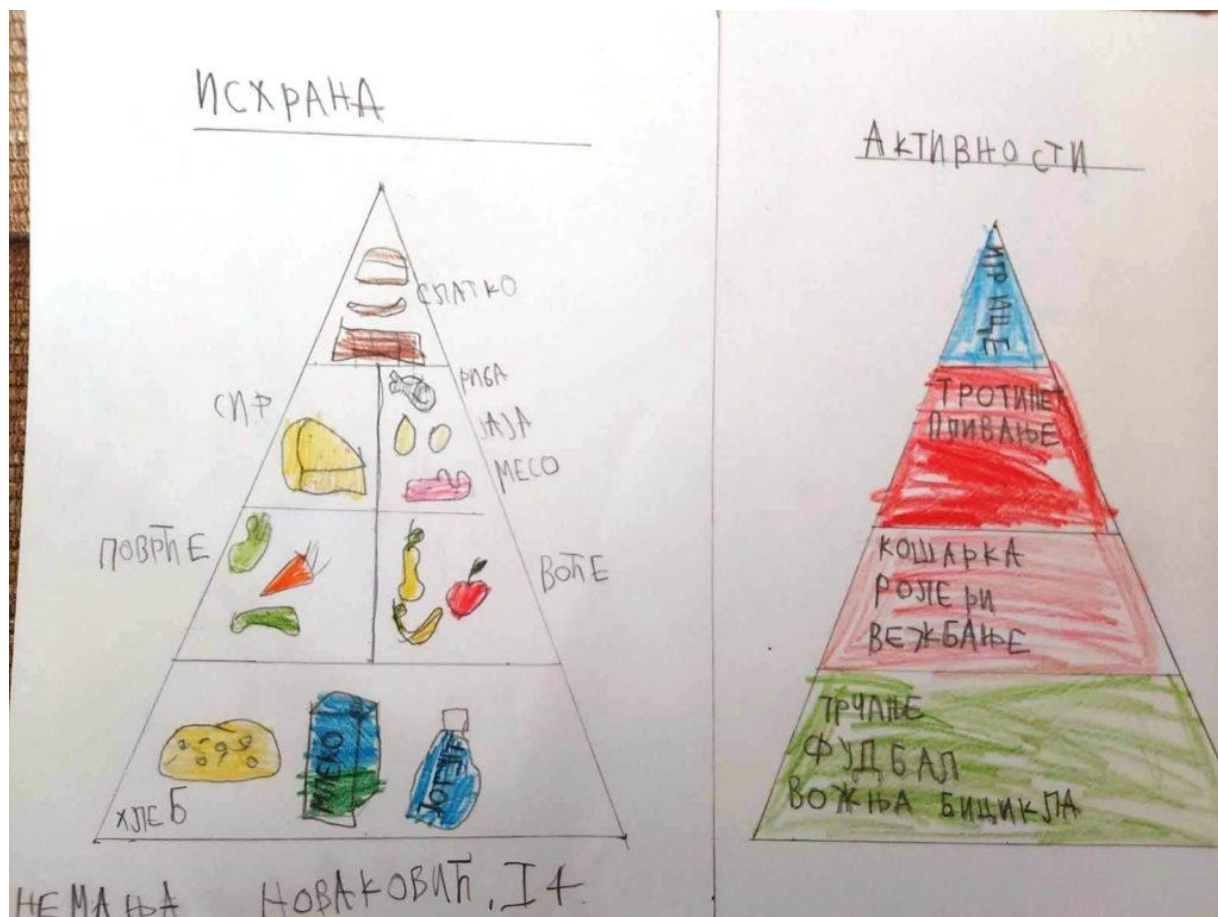 ИСХРАНА
СЛАТКО
СИР
РИБА
ЈАЈА
МЕСО
ПОВРЋЕ
ВОЋЕ
ХЛЕБ
МЛЕКО
ЈОГУРТ
НЕМАЊА НОВАКОВИЋ, I 4
АКТИВНОСТИ
ИГРИЦЕ
ТРОТИНЕТ
ПЛИВАЊЕ
КОШАРКА
РОЛЕРИ
ВЕЖБАЊЕ
ТРЧАЊЕ
ФУДБАЛ
ВОЖЊА БИЦИКЛА